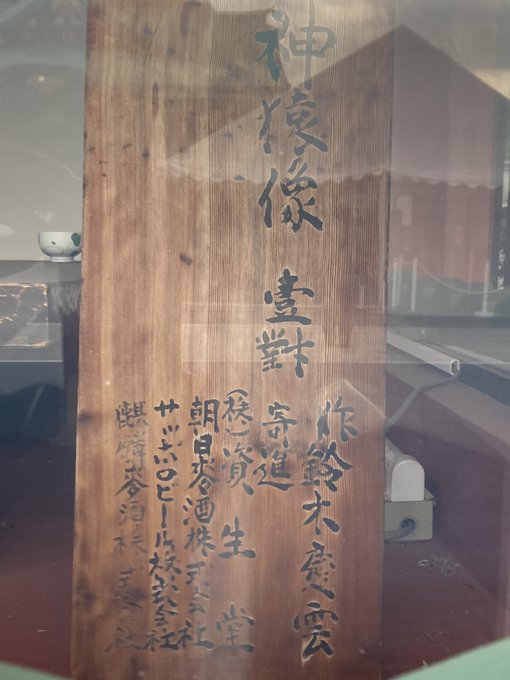 神猿像 壹對 寄進
作鈴木慶雲
(株)資生堂
朝日麥酒株式会社
サッポロビール株式会社
麒麟麥酒株式会社